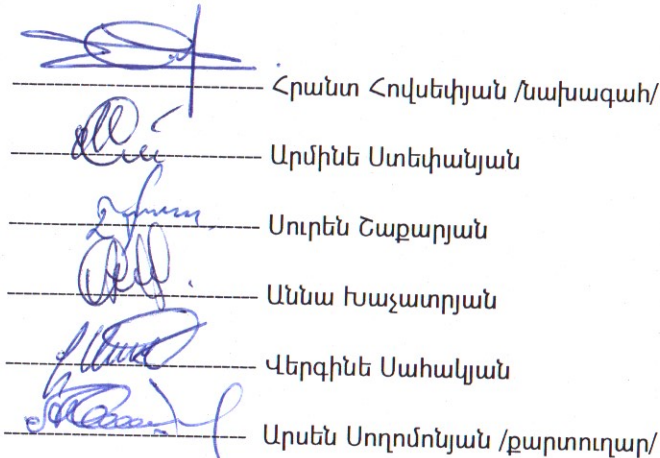 -------------------------- Հրանտ Հովսեփյան /նախագահ/
-------------------------- Արմինե Ստեփանյան
-------------------------- Սուրեն Շաքարյան
-------------------------- Աննա Խաչատրյան
-------------------------- Վերգինե Սահակյան
-------------------------- Արսեն Սողոմոնյան /քարտուղար/